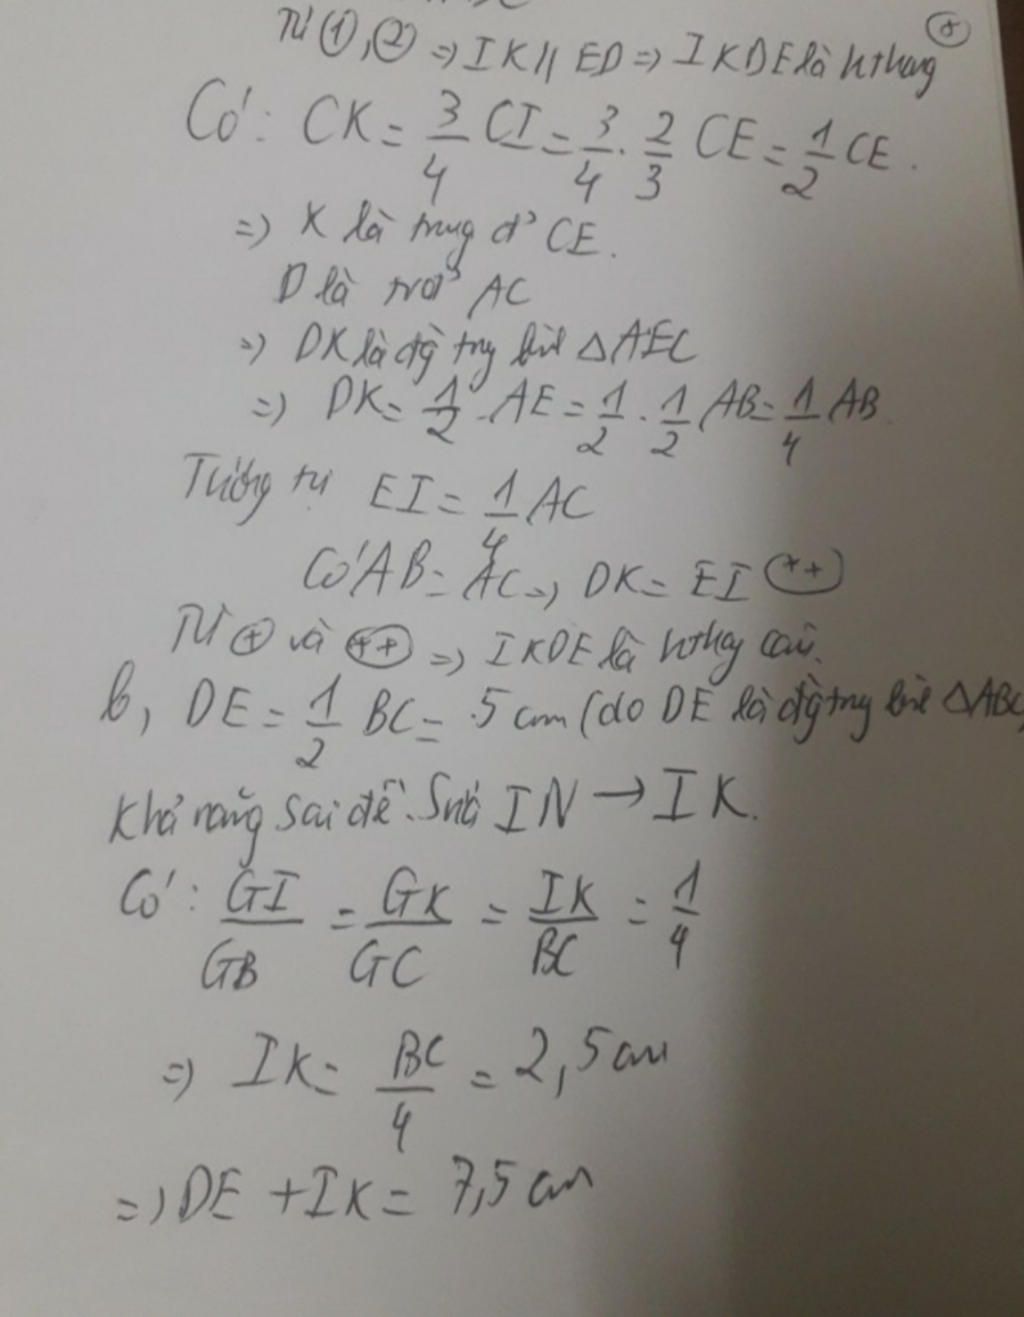 Từ ①, ② => IK // ED => IKDE là hthang ⊕
Có: CK = 3/4 CI = 3/4 . 2/3 CE = 1/2 CE.
=> K là trung đ' CE.
D là trđ' AC
=> DK là đg tray bìh △AEC
=> DK = 1/2 . AE = 1/2 . 1/2 AB = 1/4 AB
Tương tự EI = 1/4 AC
Có AB = AC => DK = EI (++)
Từ (+) và (++) => IKDE là hthag cân.
b, DE = 1/2 BC = 5 cm (do DE là đg trg bìh △ABC)
Khả năng sai đề. Sửa IN → IK.
Có: GI/GB = GK/GC = IK/BC = 1/4
=> IK = BC/4 = 2,5 cm
=> DE + IK = 7,5 cm